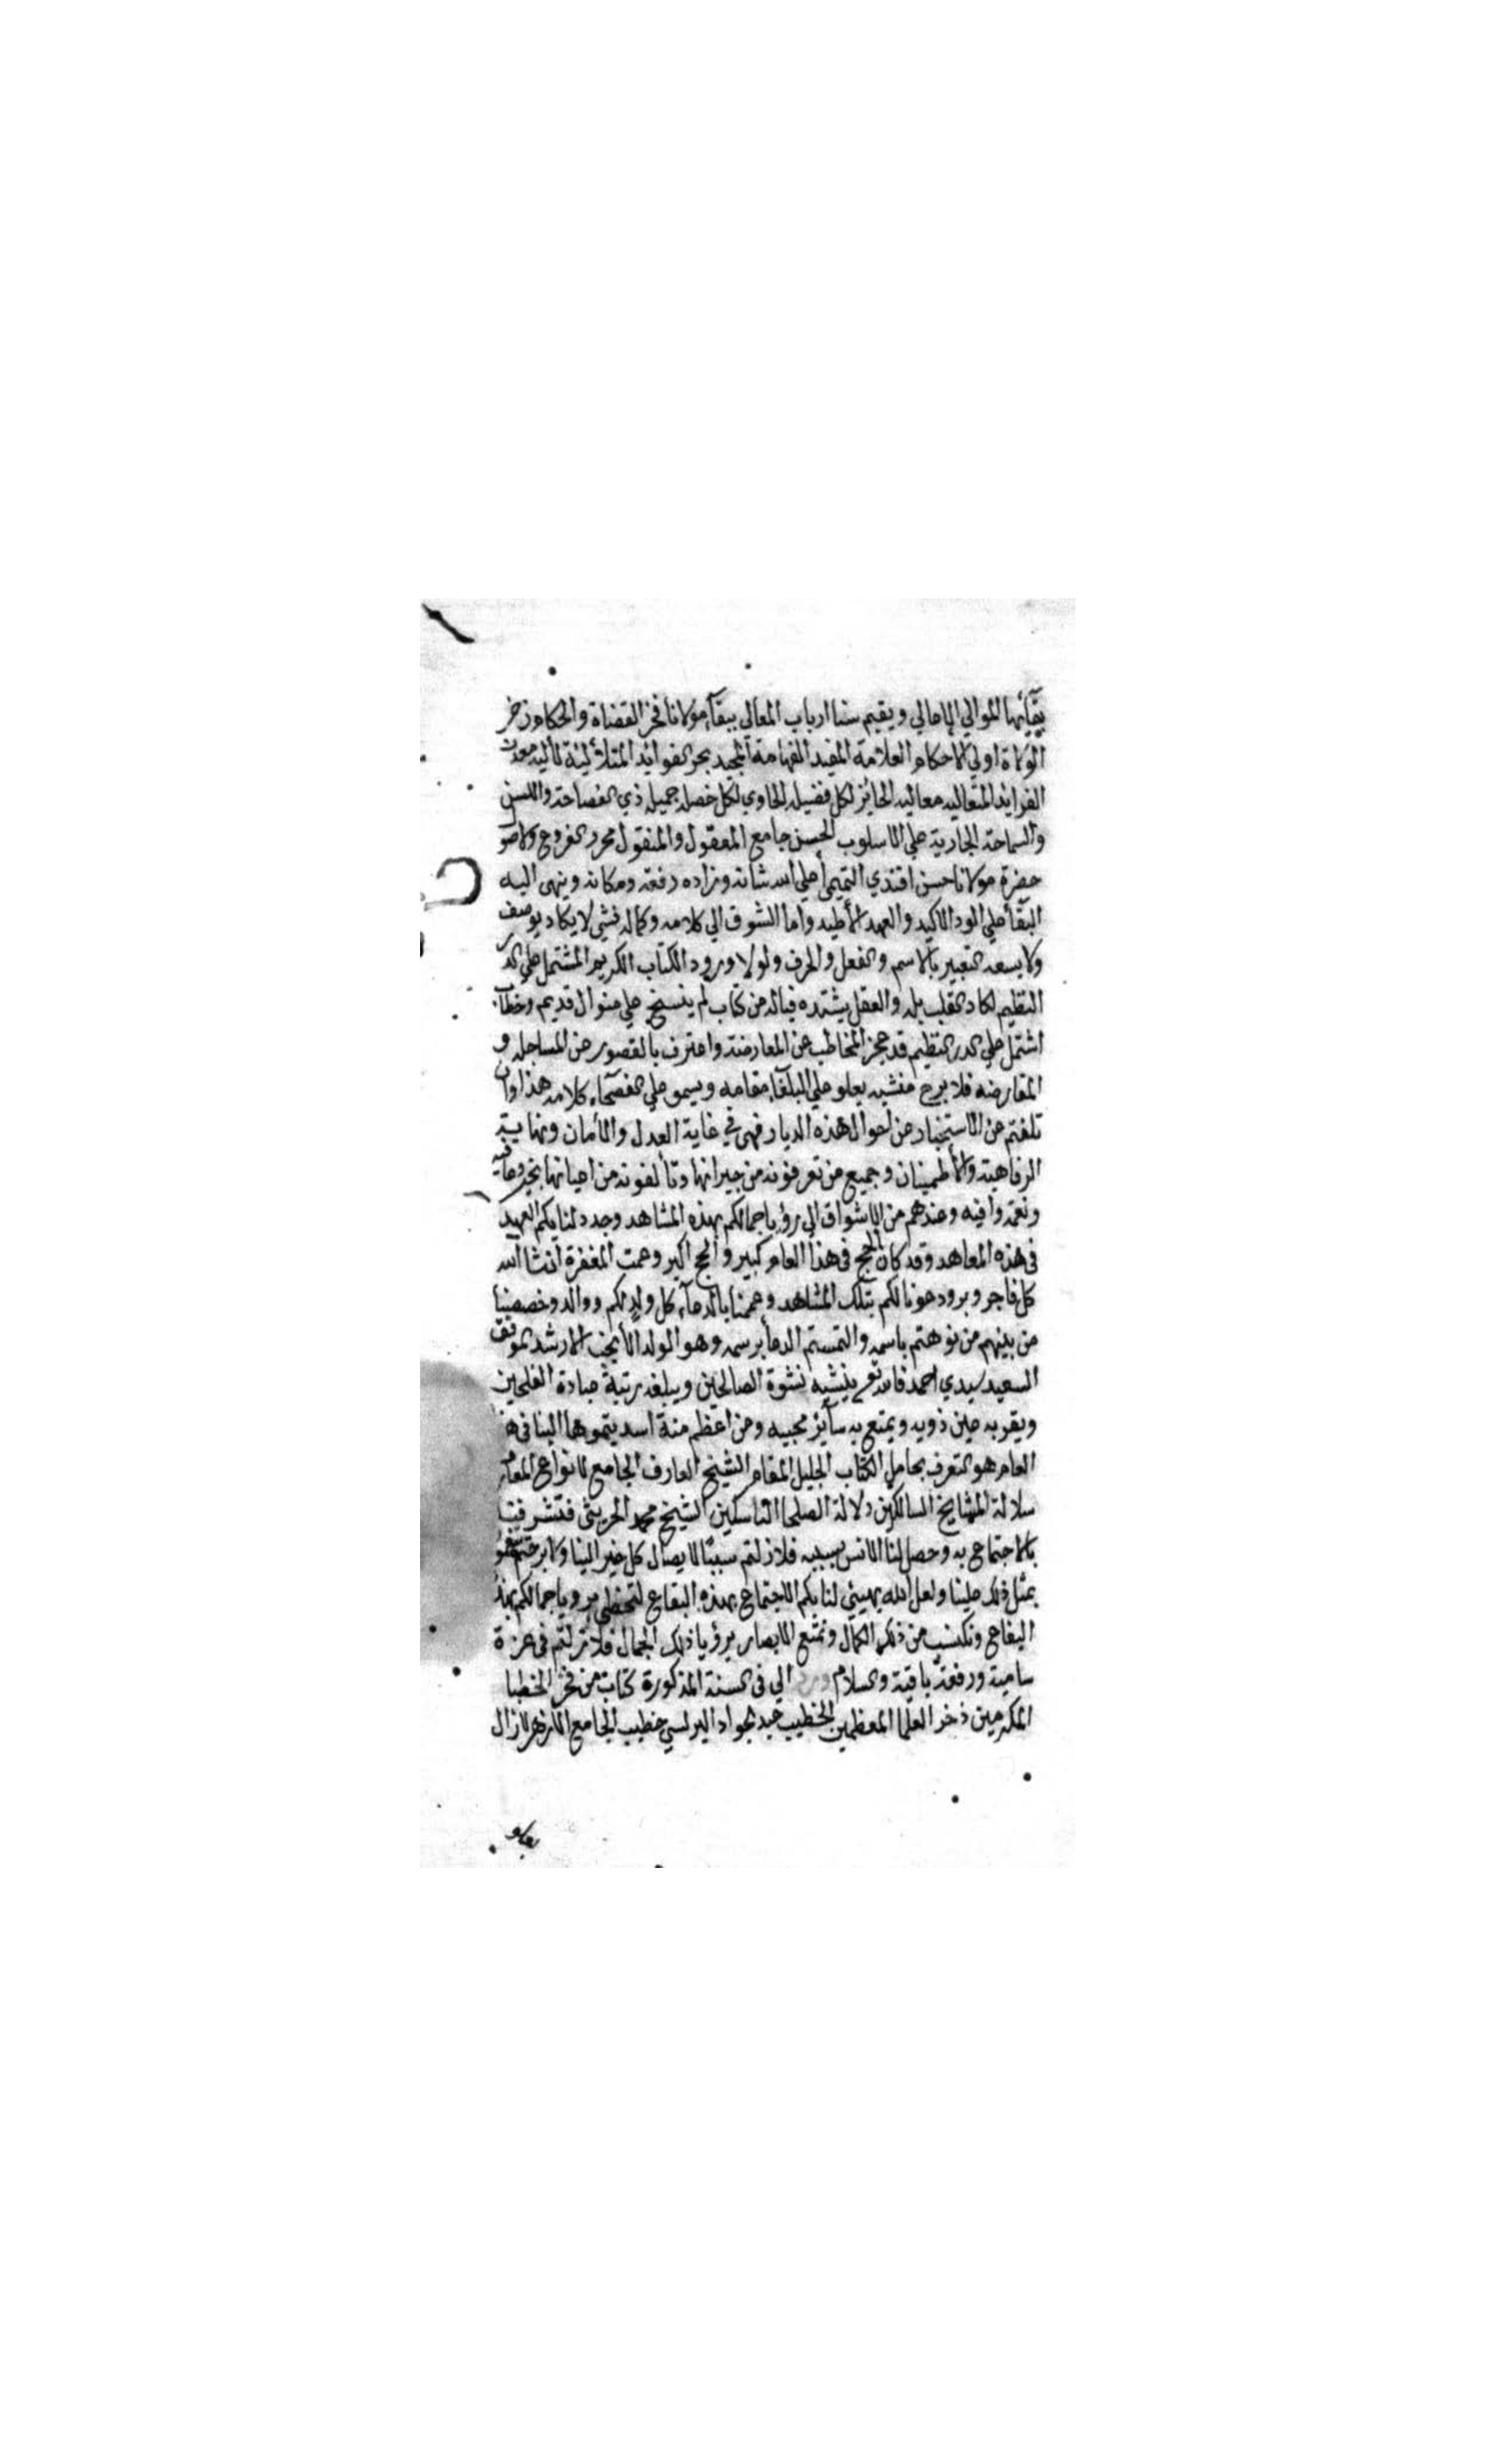 ببقائها الموالي الاهالي ويقيم سنا ارباب المعالي ببقآء مولانا فخر القضاة والحكام ذخر
الولاة اولي الاحكام العلامة المفيد الفهامة المجيد بحر الفوايد المتلألئة لآليه معدن
الفرايد المتعاليه معاليه الحائز لكل فضيله الحاوي لكل خصله جميله ذي الفصاحة واللسن
والسماحة الجارية علي الاسلوب الحسن جامع المعقول والمنقول محرر الفروع والاصو
حضرة مولانا حسن افندي التميمي أعلي الله شانه وزاده رفعة ومكانه وينهى اليه
البقآ علي الود الاكيد والعهد الأطيد واما الشوق الي كلامه وكماله فشي لا يكاد يوصف
ولا يسعه التعبير بالاسم والفعل والحرف ولولا ورود الكتاب الكريم المشتمل علي الدر
النظيم لكاد القلب يله والعقل يشتده فياله من كتاب لم ينسخ علي منوال قديم وخطاب
اشتمل علي الدر النظيم قد عجز المخاطب عن المعارضة واعترف بالقصور عن المساجله و
المقارضه فلا برح منشيه يعلو علي البلغآء مقامه ويسمو علي الفصحآء كلامه هذا وان
تلفتم عن الاستخبار عن احوال هذه الديار فهي في غاية العدل والأمان ونهاية
الرفاهية والأطمينان وجميع من تعرفونه من جيرانها وتألفونه من اعيانها بخير وعافية
ونعمة وافيه وعندهم من الاشواق الي رؤيا جمالكم بهذه المشاهد وجدد لنا بكم العهد
في هذه المعاهد وقد كان الحج في هذا العام كبير والحج اكبر وعمت المغفرة انشا الله
كل فاجر وبر ودعونا لكم بتلك المشاهد وعممنا بالدعآء كل ولد لكم ووالد وخصصنا
من بينهم من نوهتم باسمه والتمستم الدعآ برسمه وهو الولد الأنجب الارشد الموفق
السعيد سيدي احمد فالله تع ينشيه نشوة الصالحين ويبلغه رتبة عبادة الفلحين
ويقر به عين ذويه ويمتع به سآئر محبيه ومن اعظم منة اسديتموها الينا في هذا
العام هو التعرف بحامل الكتاب الجليل المقام الشيخ العارف الجامع لانواع المعارف
سلالة المشايخ السالكين دلالة الصلحا الناسكين الشيخ محمد الحريثي فتشرفنا
بالاجتماع به وحصل لنا الانس بسببه فلا زلتم سببًا لايصال كل خير الينا ولا برحتم
بمثل ذلك علينا ولعل الله يهيئي لنا بكم الاجتماع بهذه البقاع لتحظي برويا جمالكم بهذه
البقاع ونكتسب من ذلك الكمال ونمتع الابصار برؤيا ذلك الجمال فلا زلتم في عزة
سامية ورفعة باقية والسلام الي في السنة المذكورة كتاب من فخر الخطبا
المكرمين ذخر العلما المعظمين الخطيب عبد الجواد البرلسي خطيب الجامع الازهر لازال